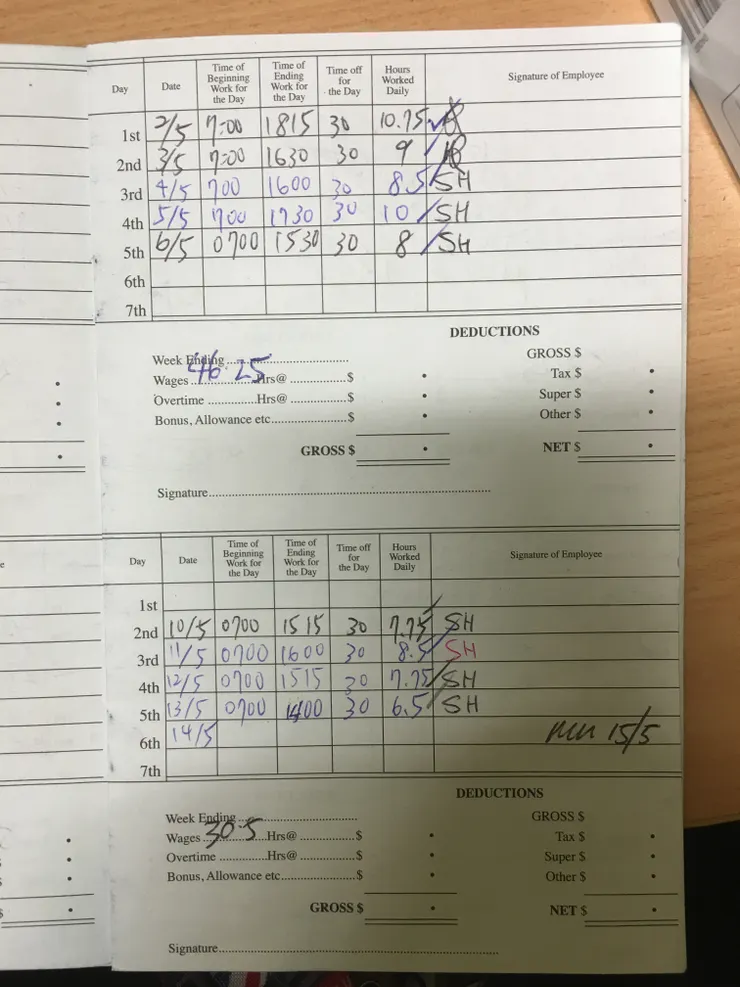 Day Date Time of Beginning Work for the Day Time of Ending Work for the Day Time off for the Day Hours Worked Daily Signature of Employee
1st 2/5 7:00 1815 30 10.75
2nd 3/5 7:00 1630 30 9
3rd 4/5 700 1600 30 8.5 SH
4th 5/5 700 1730 30 10 SH
5th 6/5 0700 1530 30 8 SH
6th
7th
DEDUCTIONS
Week Ending GROSS $
Wages 46.25 Hrs@ $ Tax $
Overtime Hrs@ $ Super $
Bonus, Allowance etc. $ Other $
GROSS $ NET $
Signature
Day Date Time of Beginning Work for the Day Time of Ending Work for the Day Time off for the Day Hours Worked Daily Signature of Employee
1st
2nd 10/5 0700 1515 30 7.75 SH
3rd 11/5 0700 1600 30 8.5 SH
4th 12/5 0700 1515 30 7.75 SH
5th 13/5 0700 1400 30 6.5 SH
6th 14/5 15/5
7th
DEDUCTIONS
Week Ending GROSS $
Wages 30.5 Hrs@ $ Tax $
Overtime Hrs@ $ Super $
Bonus, Allowance etc. $ Other $
GROSS $ NET $
Signature